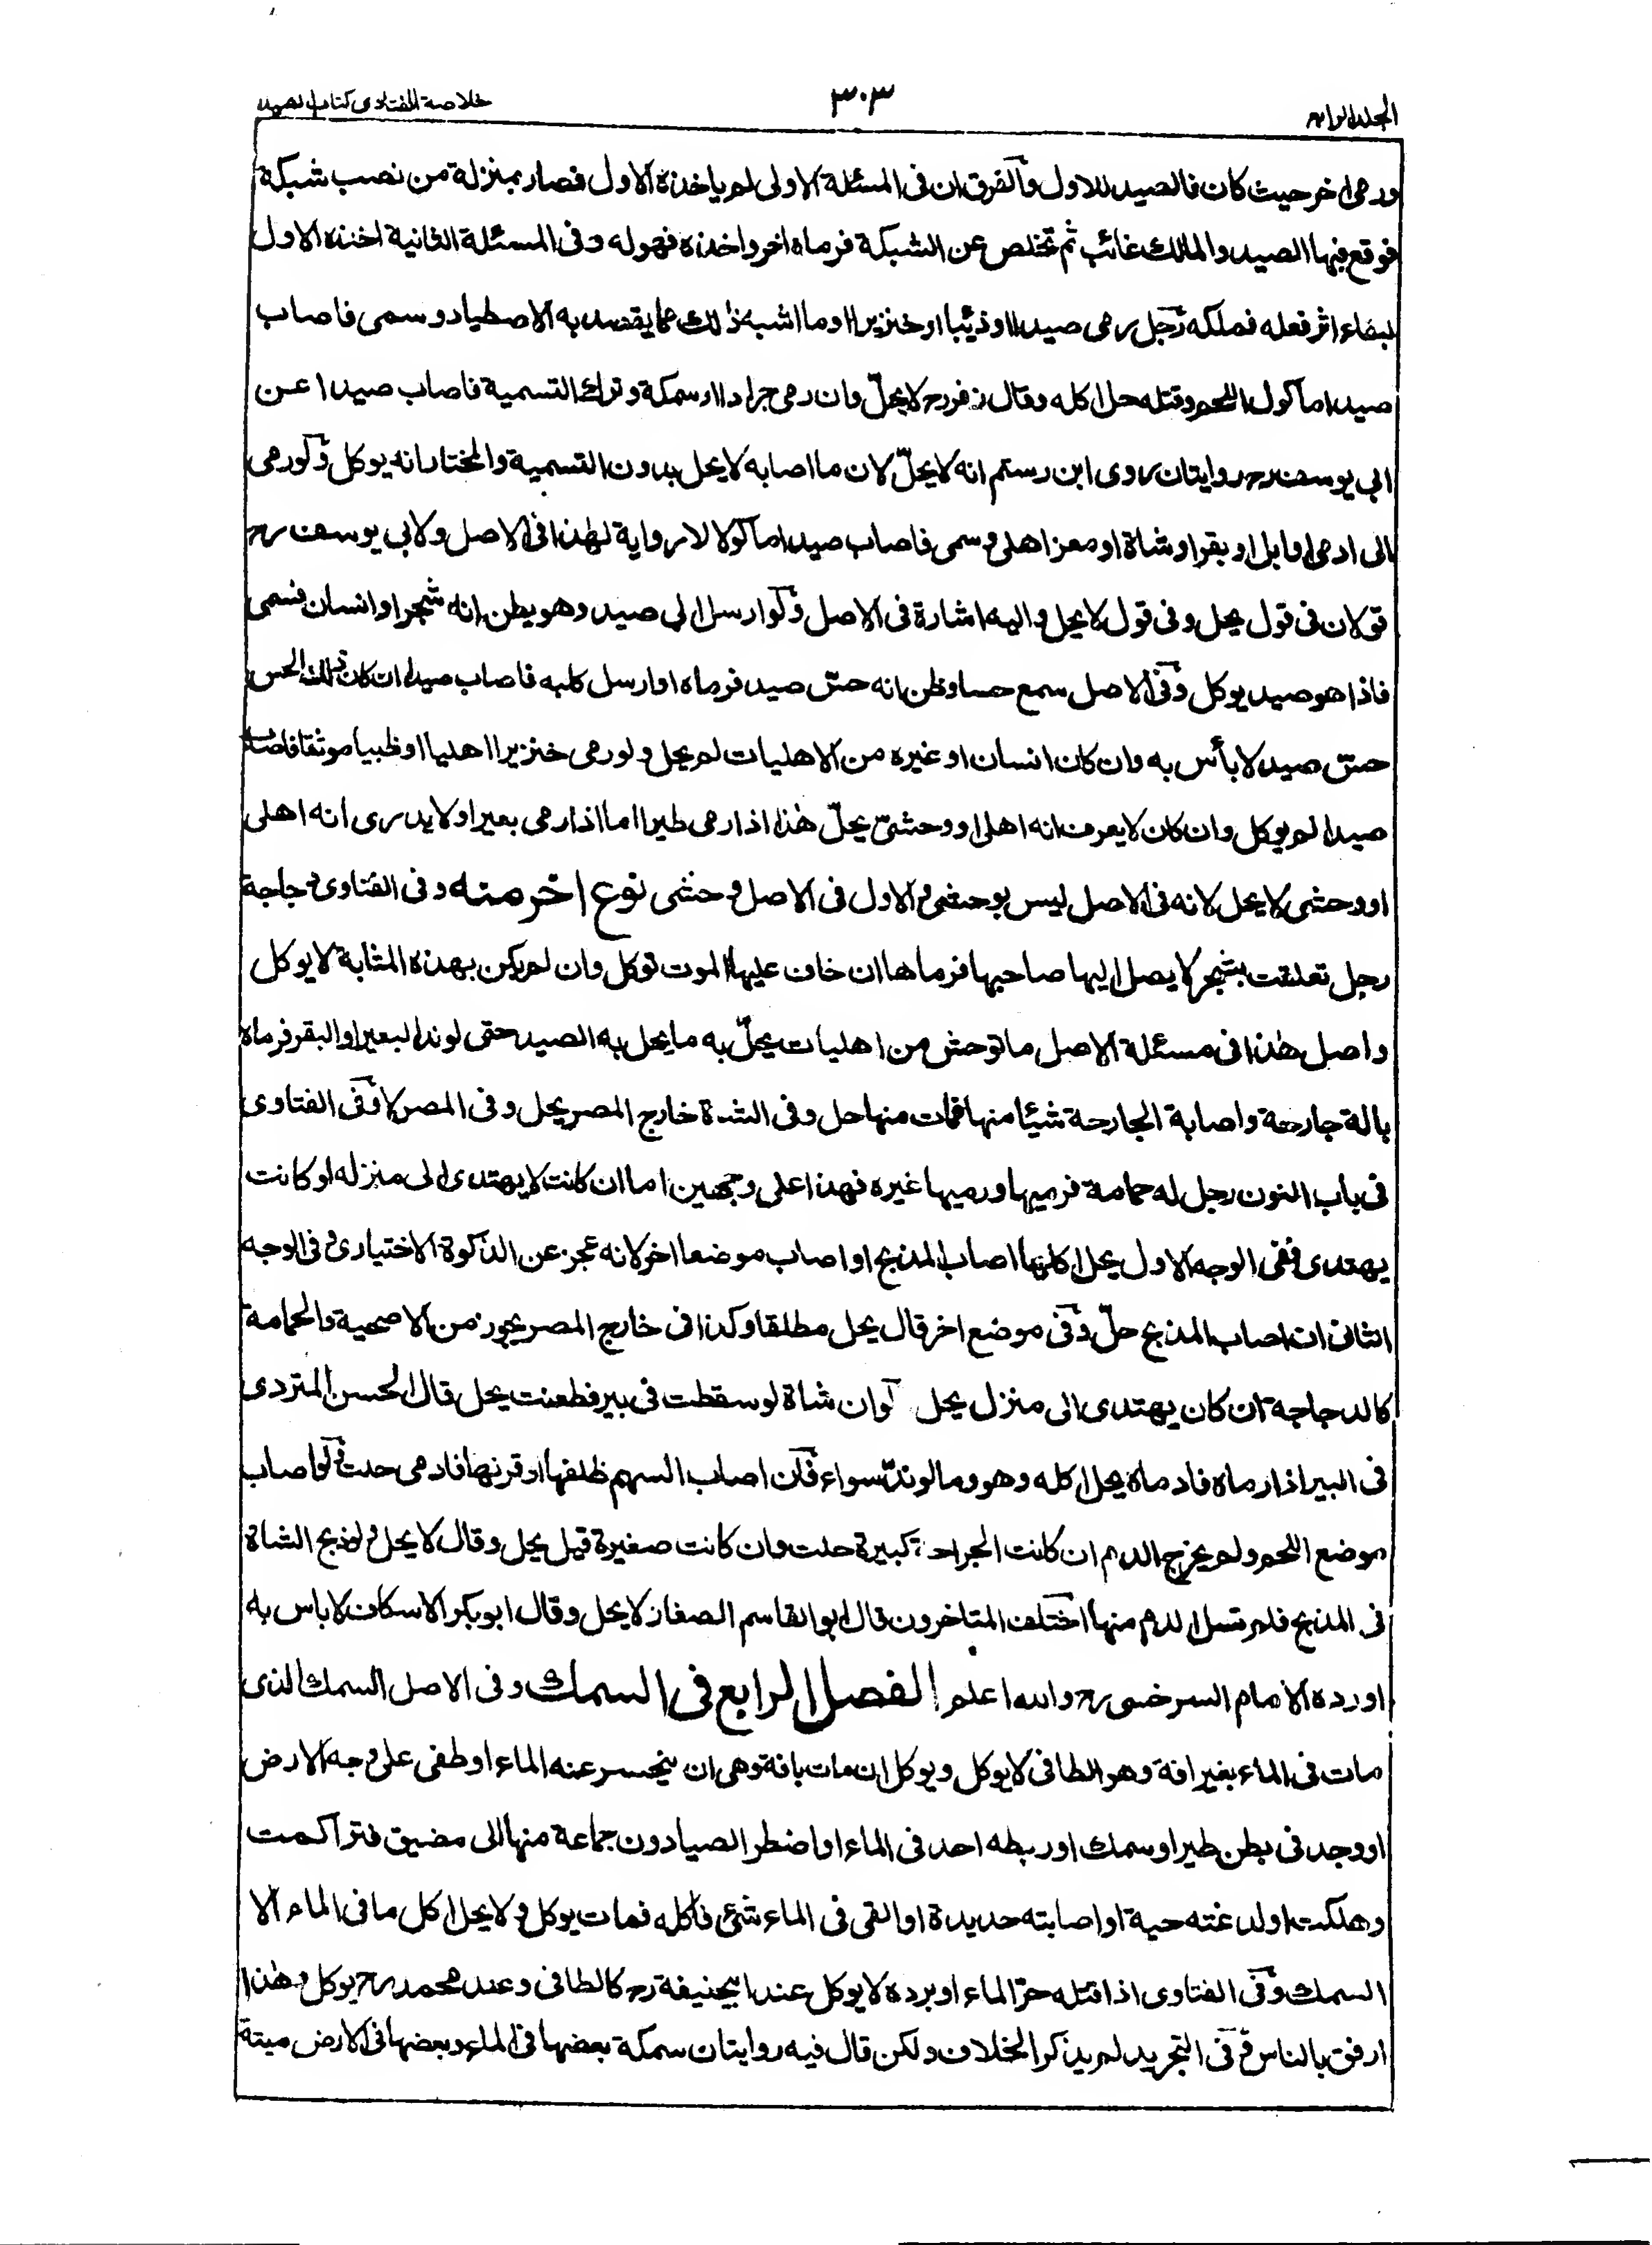 الجلد الرابع
٣٠٣
خلاصة الفتاوى كتاب الصيد
ورمى اخر حيث كان فالصيد للاول والفرق ان فى المسئلة الاولى لم ياخذه الاول فصار بمنزلة من نصب شبكة
فوقع فيها الصيد والمالك غائب ثم تخلص عن الشبكة فرماه اخر واخذه فهو له وفى المسئلة الثانية اخذه الاول
لبقاء اثر فعله فملكه رجل رمى صيدا او ذئبا او خنزيرا او ما اشبه ذلك مما يقصد به الاصطياد وسمى فاصاب
صيدا ماكول اللحم وقتله حل اكله وقال زفر رح لا يحلّ وان رمى جرادا او سمكة وترك التسمية فاصاب صيدا عن
ابى يوسف رح روايتان روى ابن رستم انه لا يحلّ لان ما اصابه لا يحل بدون التسمية والمختار انه يوكل ولو رمى
الى ادمى او ابل او بقر او شاة او معز اهلى وسمى فاصاب صيدا ماكولا لا رواية لهذا فى الاصل ولابى يوسف رح
قولان فى قول يحل وفى قول لا يحل واليه اشارة فى الاصل ولو ارسل الى صيد وهو يظن انه شجر او انسان فسمى
فاذا هو صيد يوكل وفى الاصل سمع حسا وظن انه حسّ صيد فرماه او ارسل كلبه فاصاب صيدا ان كان ذلك الحس
حسّ صيد لا بأس به وان كان انسان او غيره من الاهليات لم يحل ولو رمى خنزيرا اهليا او ظبيا موثقا فاصاب
صيدا لم يوكل وان كان لا يعرف انه اهلى او وحشىّ يحلّ هذا اذا رمى طيرا اما اذا رمى بعيرا ولا يدرى انه اهلى
او وحشى لا يحل لانه فى الاصل ليس بوحشى والاول فى الاصل وحشى نوع اخر منه وفى الفتاوى دجاجة
رجل تعلقت بشجر لا يصل اليها صاحبها فرماها ان خاف عليها الموت توكل وان لم يكن بهذه المثابة لا يوكل
واصل هذا فى مسئلة الاصل ما توحش من اهليات يحلّ به ما يحل به الصيد حتى لو ند البعير او البقر فرماه
بالة جارحة واصابة الجارحة شيئا منها فمات منها حل وفى الشاة خارج المصر يحل وفى المصر لا وفى الفتاوى
فى باب النون رجل له حمامة فرميها ورميها غيره فهذا على وجهين اما ان كانت لا يهتدى الى منزله او كانت
يهتدى ففى الوجه الاول يحل اكلها اصاب المذبح او اصاب موضعا اخر لانه عجز عن الذكوة الاختيارى وفى الوجه
الثانى ان اصاب المذبح حلّ وفى موضع اخر قال يحل مطلقا وكذا فى خارج المصر يجوز من الاضحية والحمامة
كالدجاجة ان كان يهتدى الى منزل يحل ولو ان شاة لو سقطت فى بير فطعنت يحل قال الحسن المتردى
فى البير اذا رماه فادماه يحل اكله وهو وما لو ندّ سواء فان اصاب السهم ظلفها او قرنها فادمى حلت ولو اصاب
موضع اللحم ولم يخرج الدم ان كانت الجراحة كبيرة حلت وان كانت صغيرة قيل يحل وقال لا يحل ولو ذبح الشاة
فى المذبح فلم تسل الدم منها اختلف المتاخرون قال ابو القاسم الصفار لا يحل وقال ابو بكر الاسكاف لا باس به
اورده الامام السرخسى رح والله اعلم الفصل الرابع فى السمك وفى الاصل السمك الذى
مات فى الماء بغير افة وهو الطافى لا يوكل ويوكل ان مات بافة وهى ان ينحسر عنه الماء او طفى على وجه الارض
او وجد فى بطن طير او سمك او ربطه احد فى الماء او اضطر الصيادون جماعة منها الى مضيق فتراكمت
وهلكت او لدغته حية او اصابته حديدة او القى فى الماء شئ فاكله فمات يوكل ولا يحل اكل ما فى الماء الا
السمك وفى الفتاوى اذا قتله حرّ الماء او برده لا يوكل عند ابيحنيفة رح كالطافى وعند محمد رح يوكل وهذا
ارفق بالناس وفى التجريد لم يذكر الخلاف ولكن قال فيه روايتان سمكة بعضها فى الماء وبعضها فى الارض ميتة